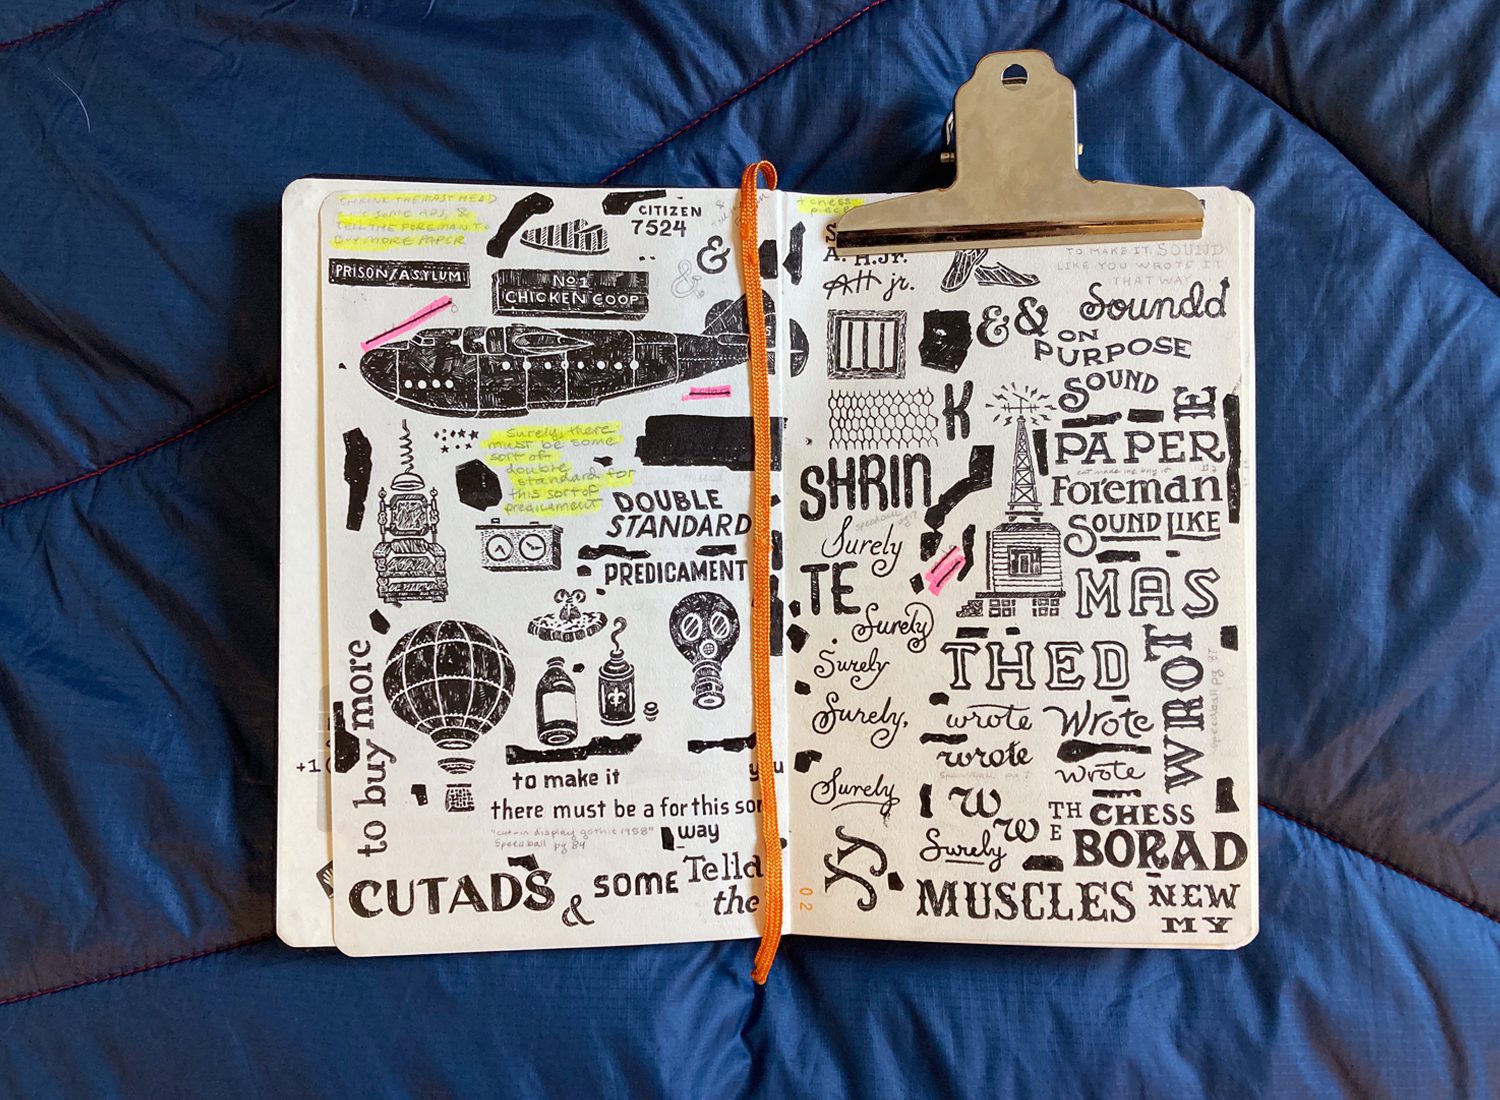 SHRINK THE MAST HEAD
SOME ADS, &
TELL THE FOREMAN TO
BUY MORE PAPER
CITIZEN
7524
&
&
PRISON/ASYLUM
No 1
CHICKEN COOP
Surely, there
must be some
sort of
double
standard for
this sort of
predicament
DOUBLE
STANDARD
PREDICAMENT
to buy more
+1
to make it
you
there must be a for this sor
"cut-in display gothic 1958"
Speedball pg 84
way
CUTADS
&
SOME
Telld
the
+ chess
piece
A. H.Jr.
AH jr.
TO MAKE IT SOUND
LIKE YOU WROTE IT
THAT WAY
&&
Soundd
ON
PURPOSE
SOUND
K
E
PAPER
SHRIN
Foreman
speedball pg 7
SOUND LIKE
Surely
TE
MAS
Surely
THED
WROT
speedball pg 87
Surely
Surely,
wrote
Wrote
wrote
Wrote
Surely
W
W
TH
E
CHESS
BORAD
Surely
yy
02
MUSCLES
NEW
MY